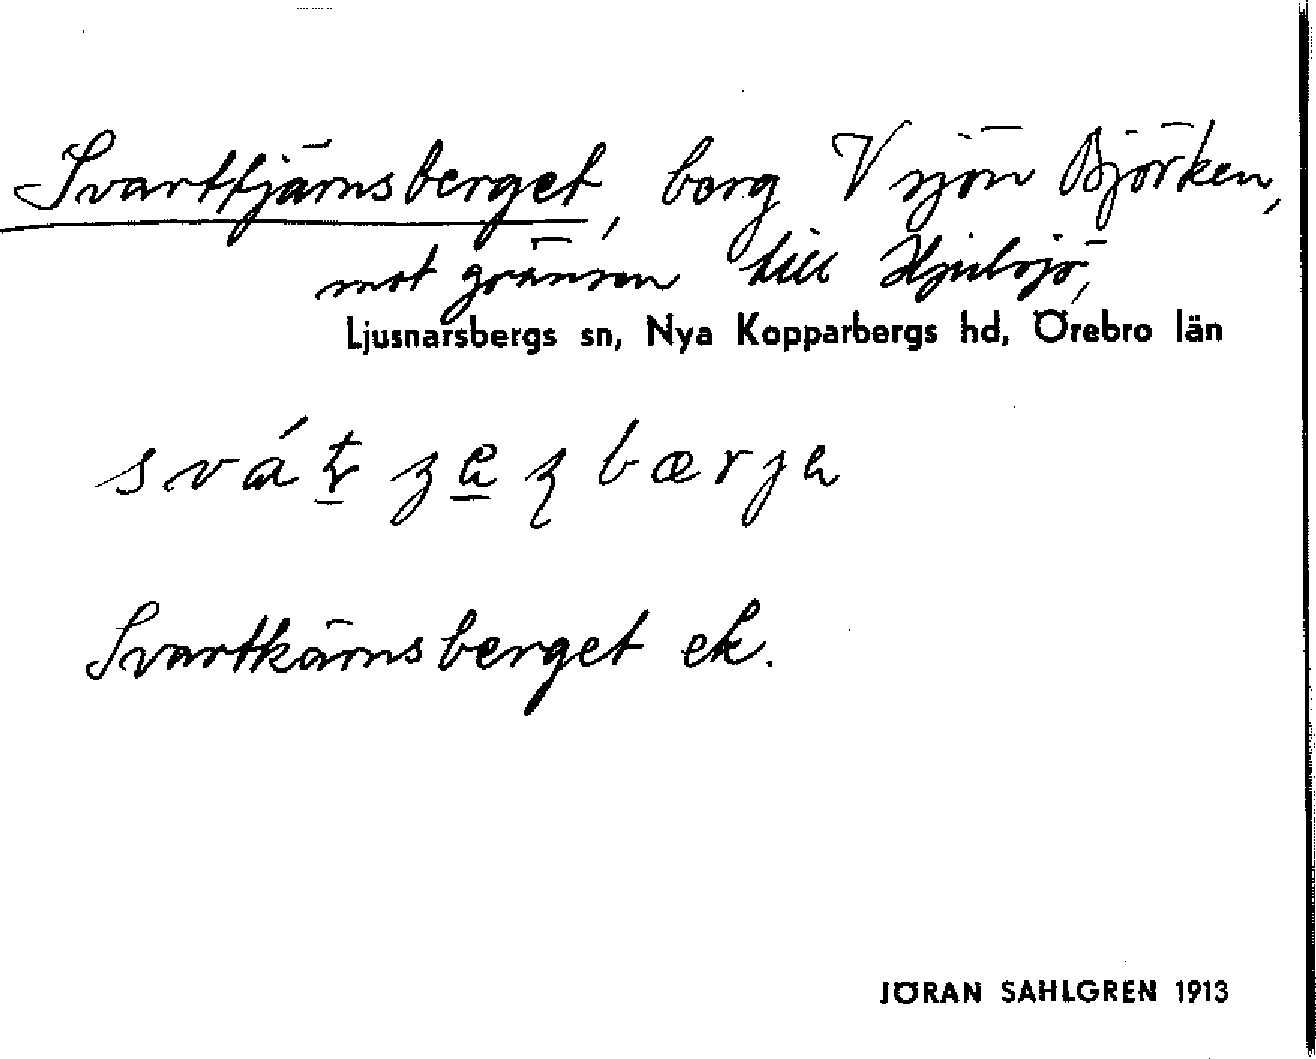 Svarttjärnsberget, berg V sjön Björken,
mot gränsen till Hjulsjö,
Ljusnarsbergs sn, Nya Kopparbergs hd, Örebro län
Svartkärnsberget ek.
JÖRAN SAHLGREN 1913